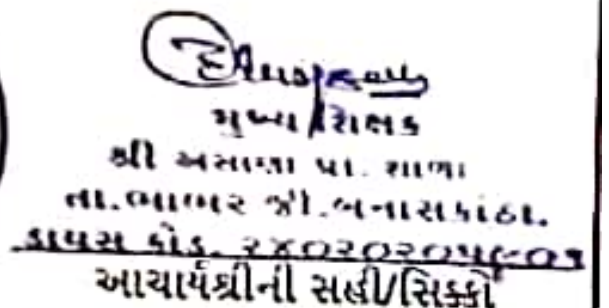 મુખ્ય શિક્ષક
શ્રી અસાણા પ્રા. શાળા
તા.ભાભર જી.બનાસકાંઠા.
ડાયસ કોડ. ૨૪૦૨૦૨૦૫૯૦૧
આચાર્યશ્રીની સહી/સિક્કો